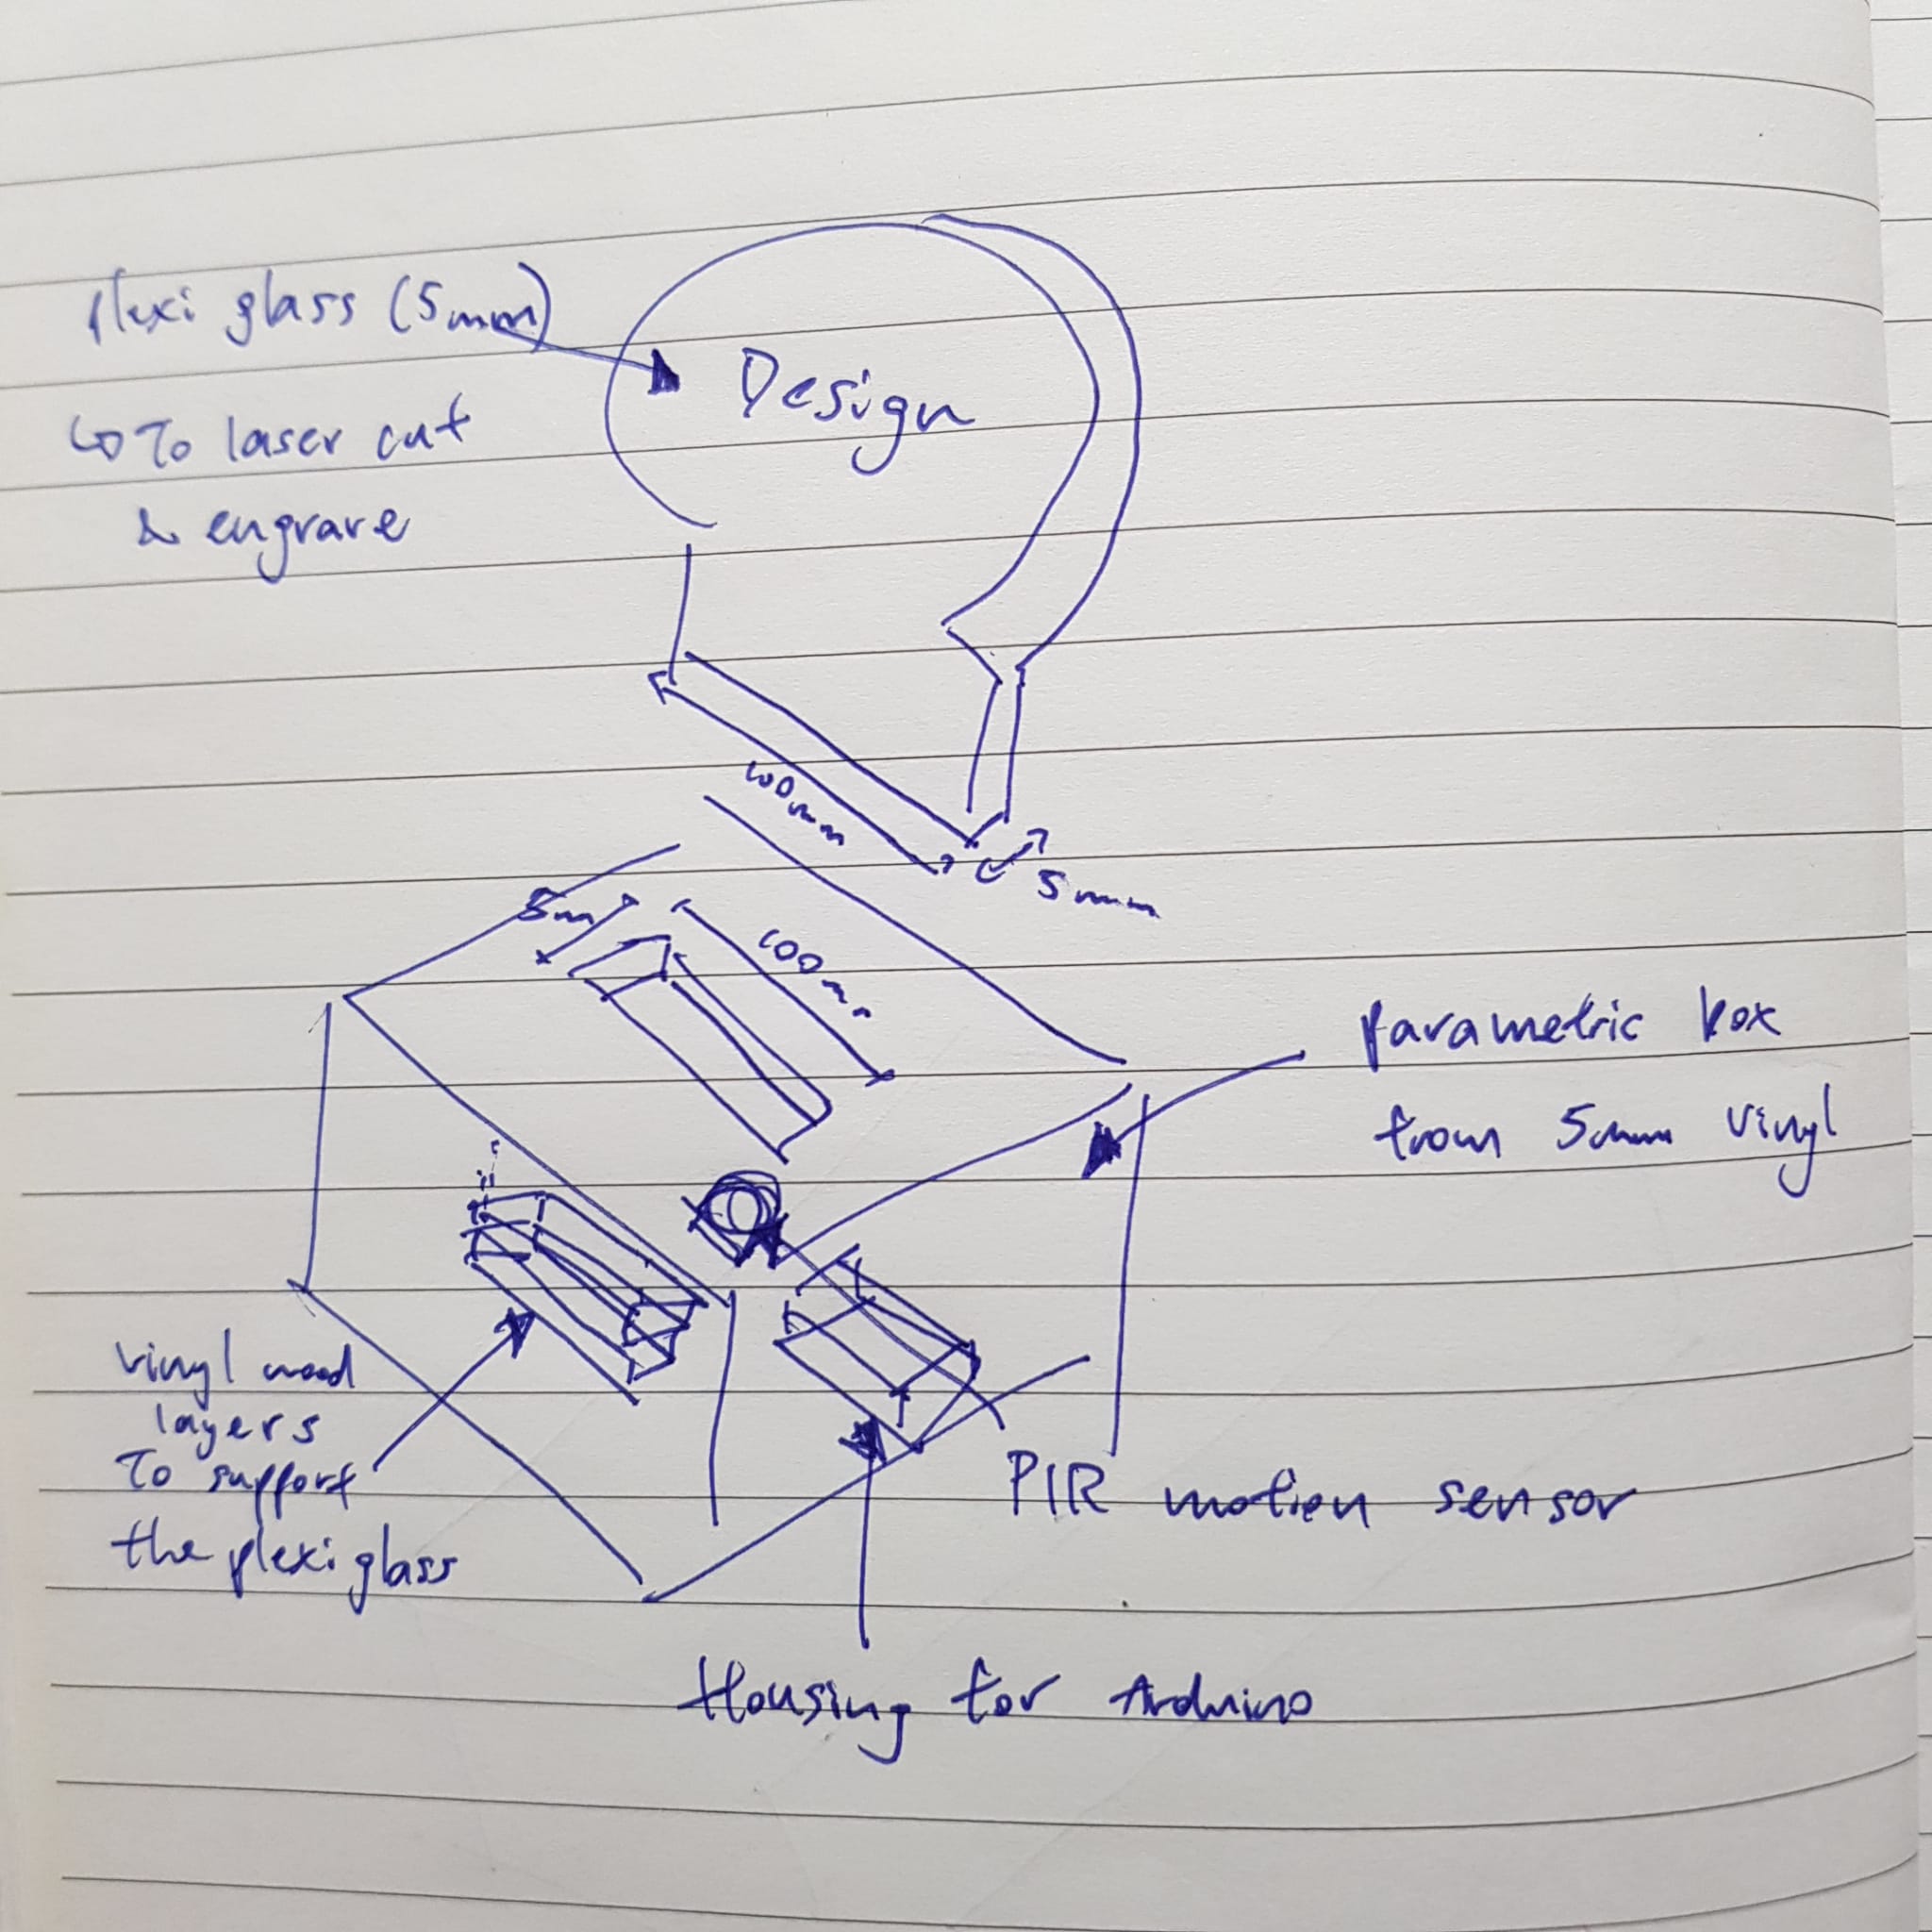 plexi glass (5mm)
↳ To laser cut
& engrave
Design
100mm
5mm
5mm
100mm
parametric box
from 5mm vinyl
vinyl wood
layers
To support
the plexi glass
PIR motion sensor
Housing for Arduino